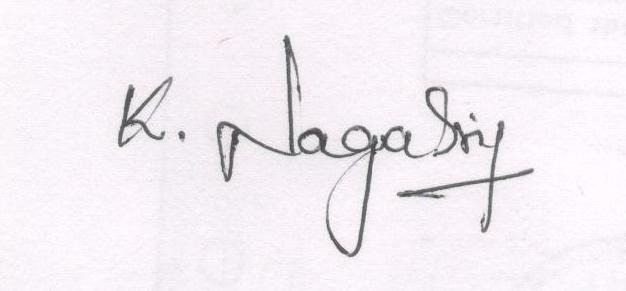 K. Nagasri